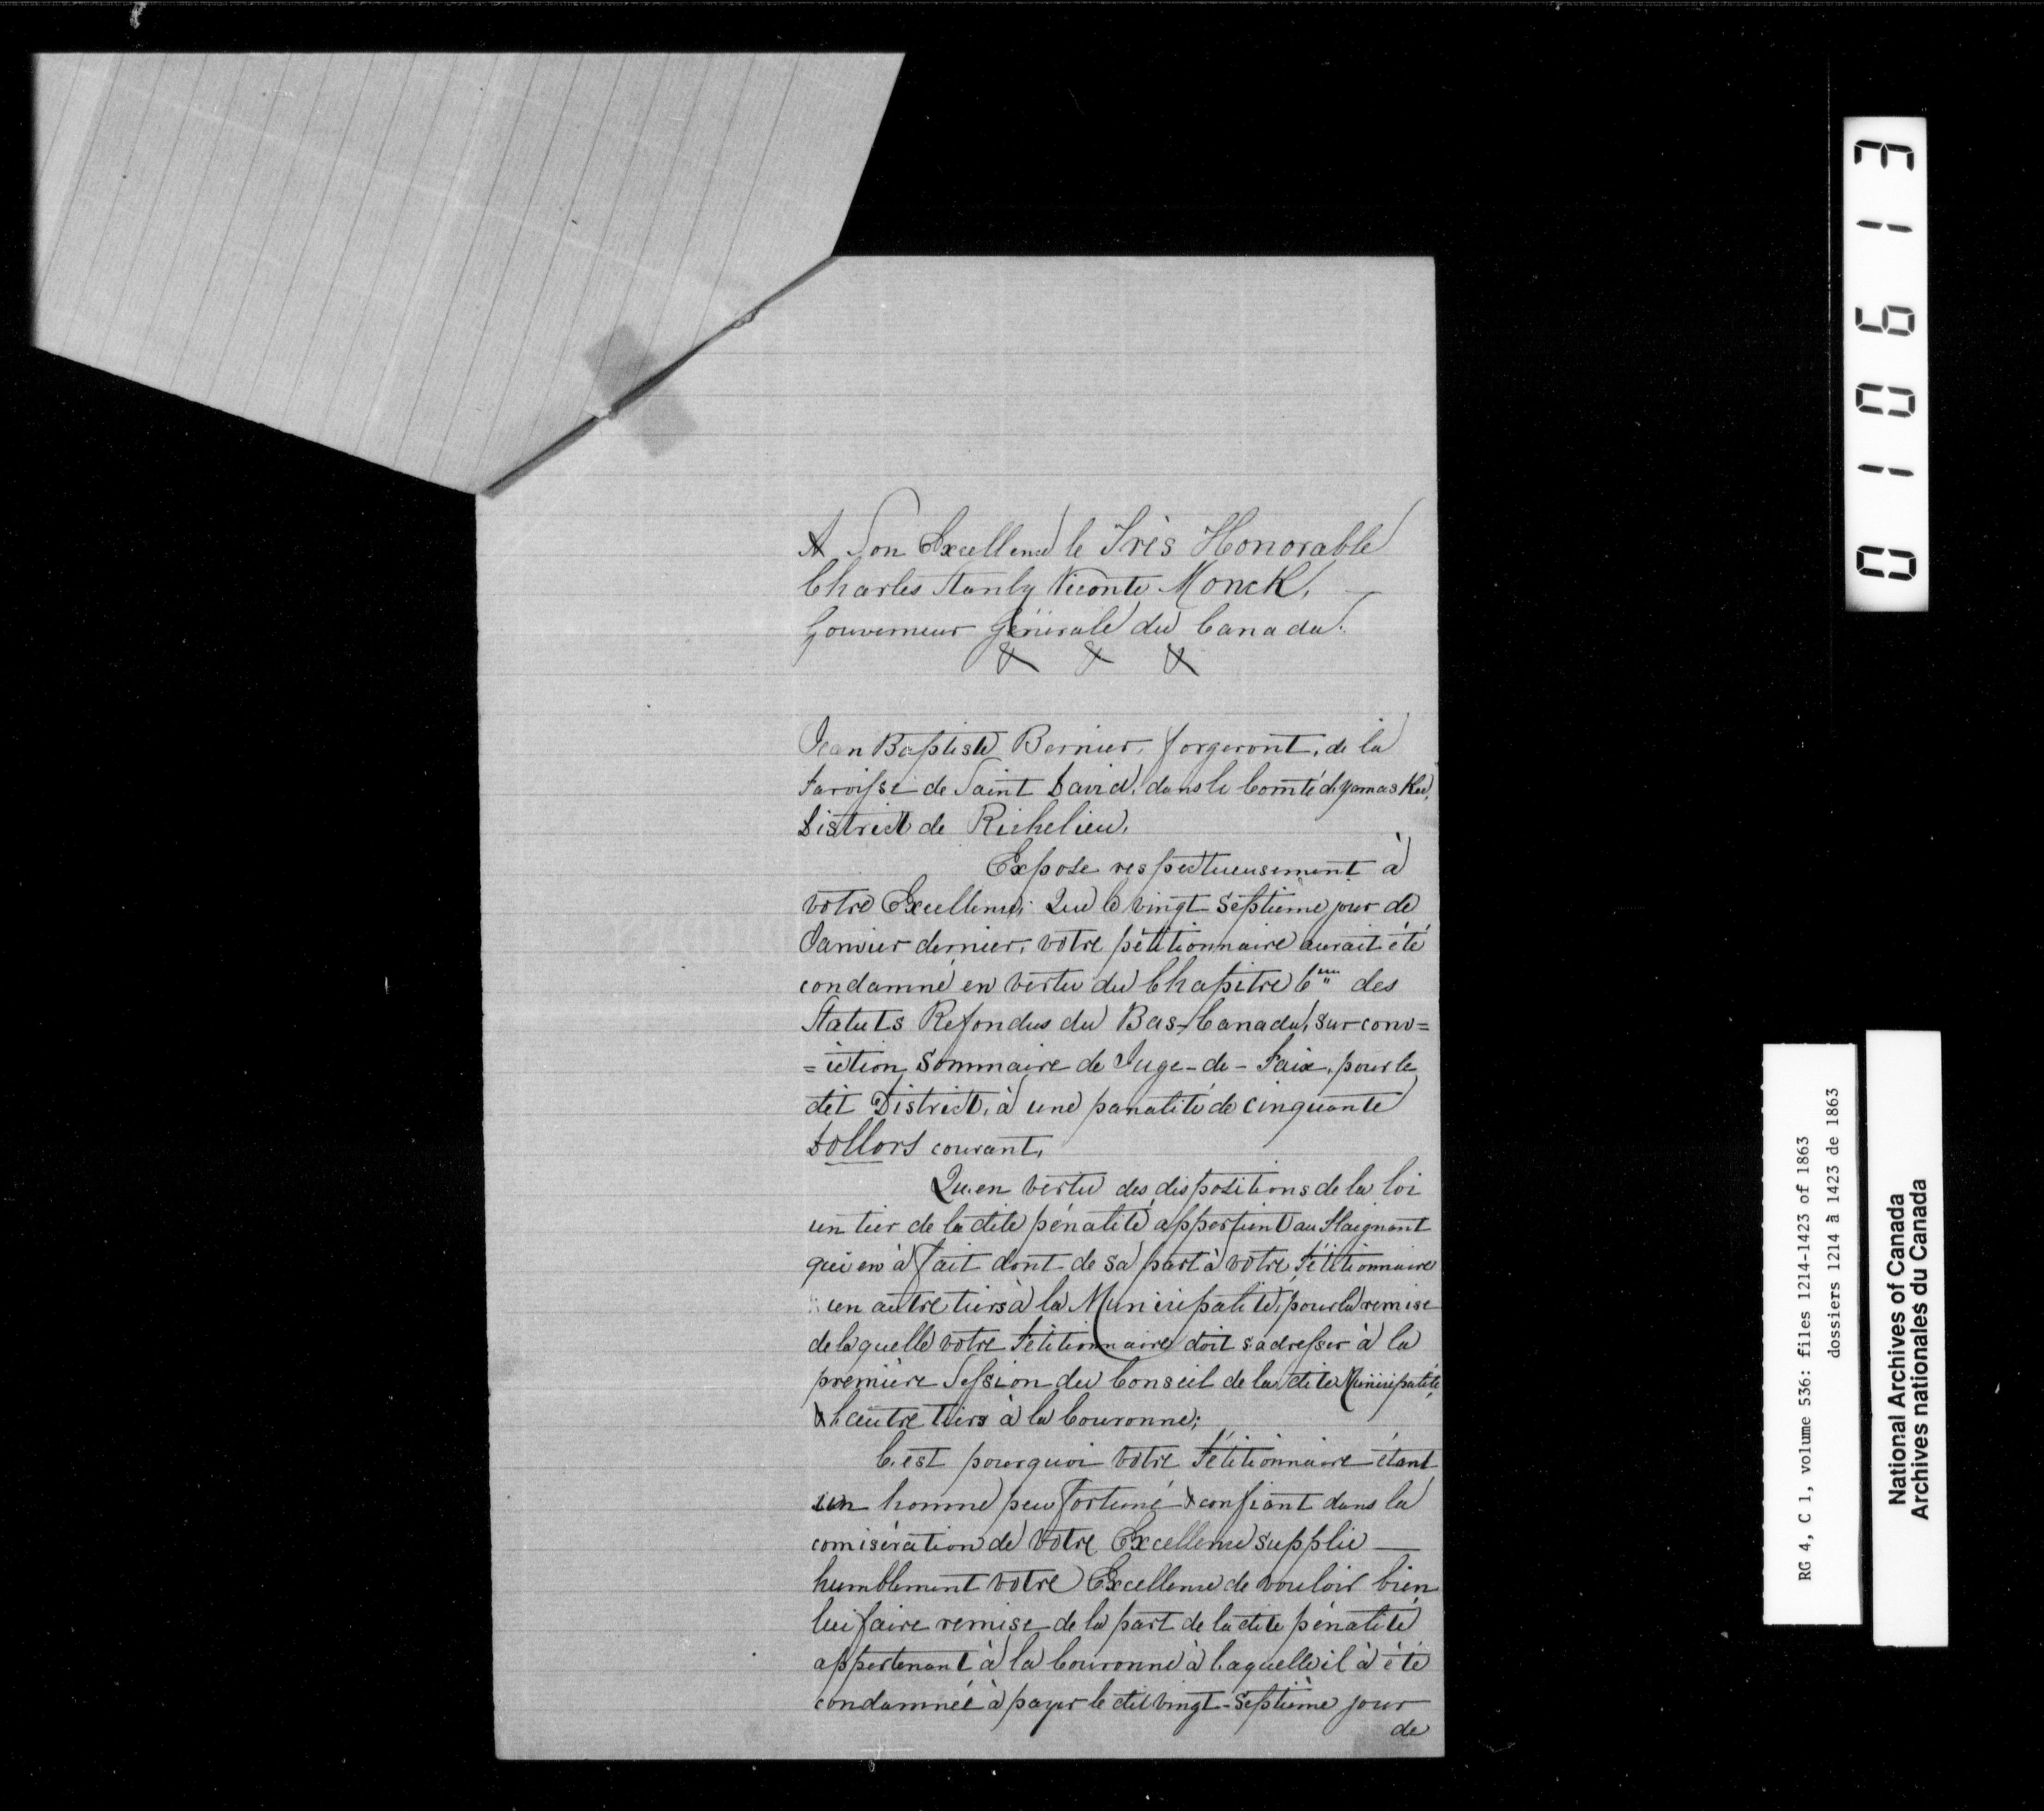 A Son Excellence le Très Honorable
Charles Stanly Viconte Monck,
Gouverneur Générale du Canada.
& & &
Jean Baptiste Bernier, forgeront, de la
Paroisse de Saint David, dans le Comté de yamaska,
District de Richelieu.
Expose respectueusement à
votre Excellence; Que le vingt septième jour de
Janvier dernier, votre pétitionnaire aurait été
condamné en vertu du Chapitre 6 des
Statuts Refondus du Bas-Canada, sur conv=
=iction Sommaire de Juge-de-Paix, pour le
dit District, à une panalité de cinquante
Dollors courant,
Qu'en vertu des dispositions de la loi
un tier de la dite pénalité appertient au Plaignant
qui en à fait dont de sa part à votre Pétitionnaire
un autre tiers à la Municipalité, pour la remise
de laquelle votre Pétitionnaire doit s'adresser à la
première Session du Conseil de la dite Municipalité,
& l'autre tiers à la Couronne;
C'est pourquoi votre Pétitionnaire étant
un homme peu fortuné & confiant dans la
comisération de votre Excellence supplie
humblement votre Excellence de vouloir bien
lui faire remise de la part de la dite pénalité
appertenant à la Couronne à laquelle il à été
condamnée à payer le dit vingt-septième jour
de
010613
RG 4, C 1, volume 536: files 1214-1423 of 1863
dossiers 1214 à 1423 de 1863
National Archives of Canada
Archives nationales du Canada